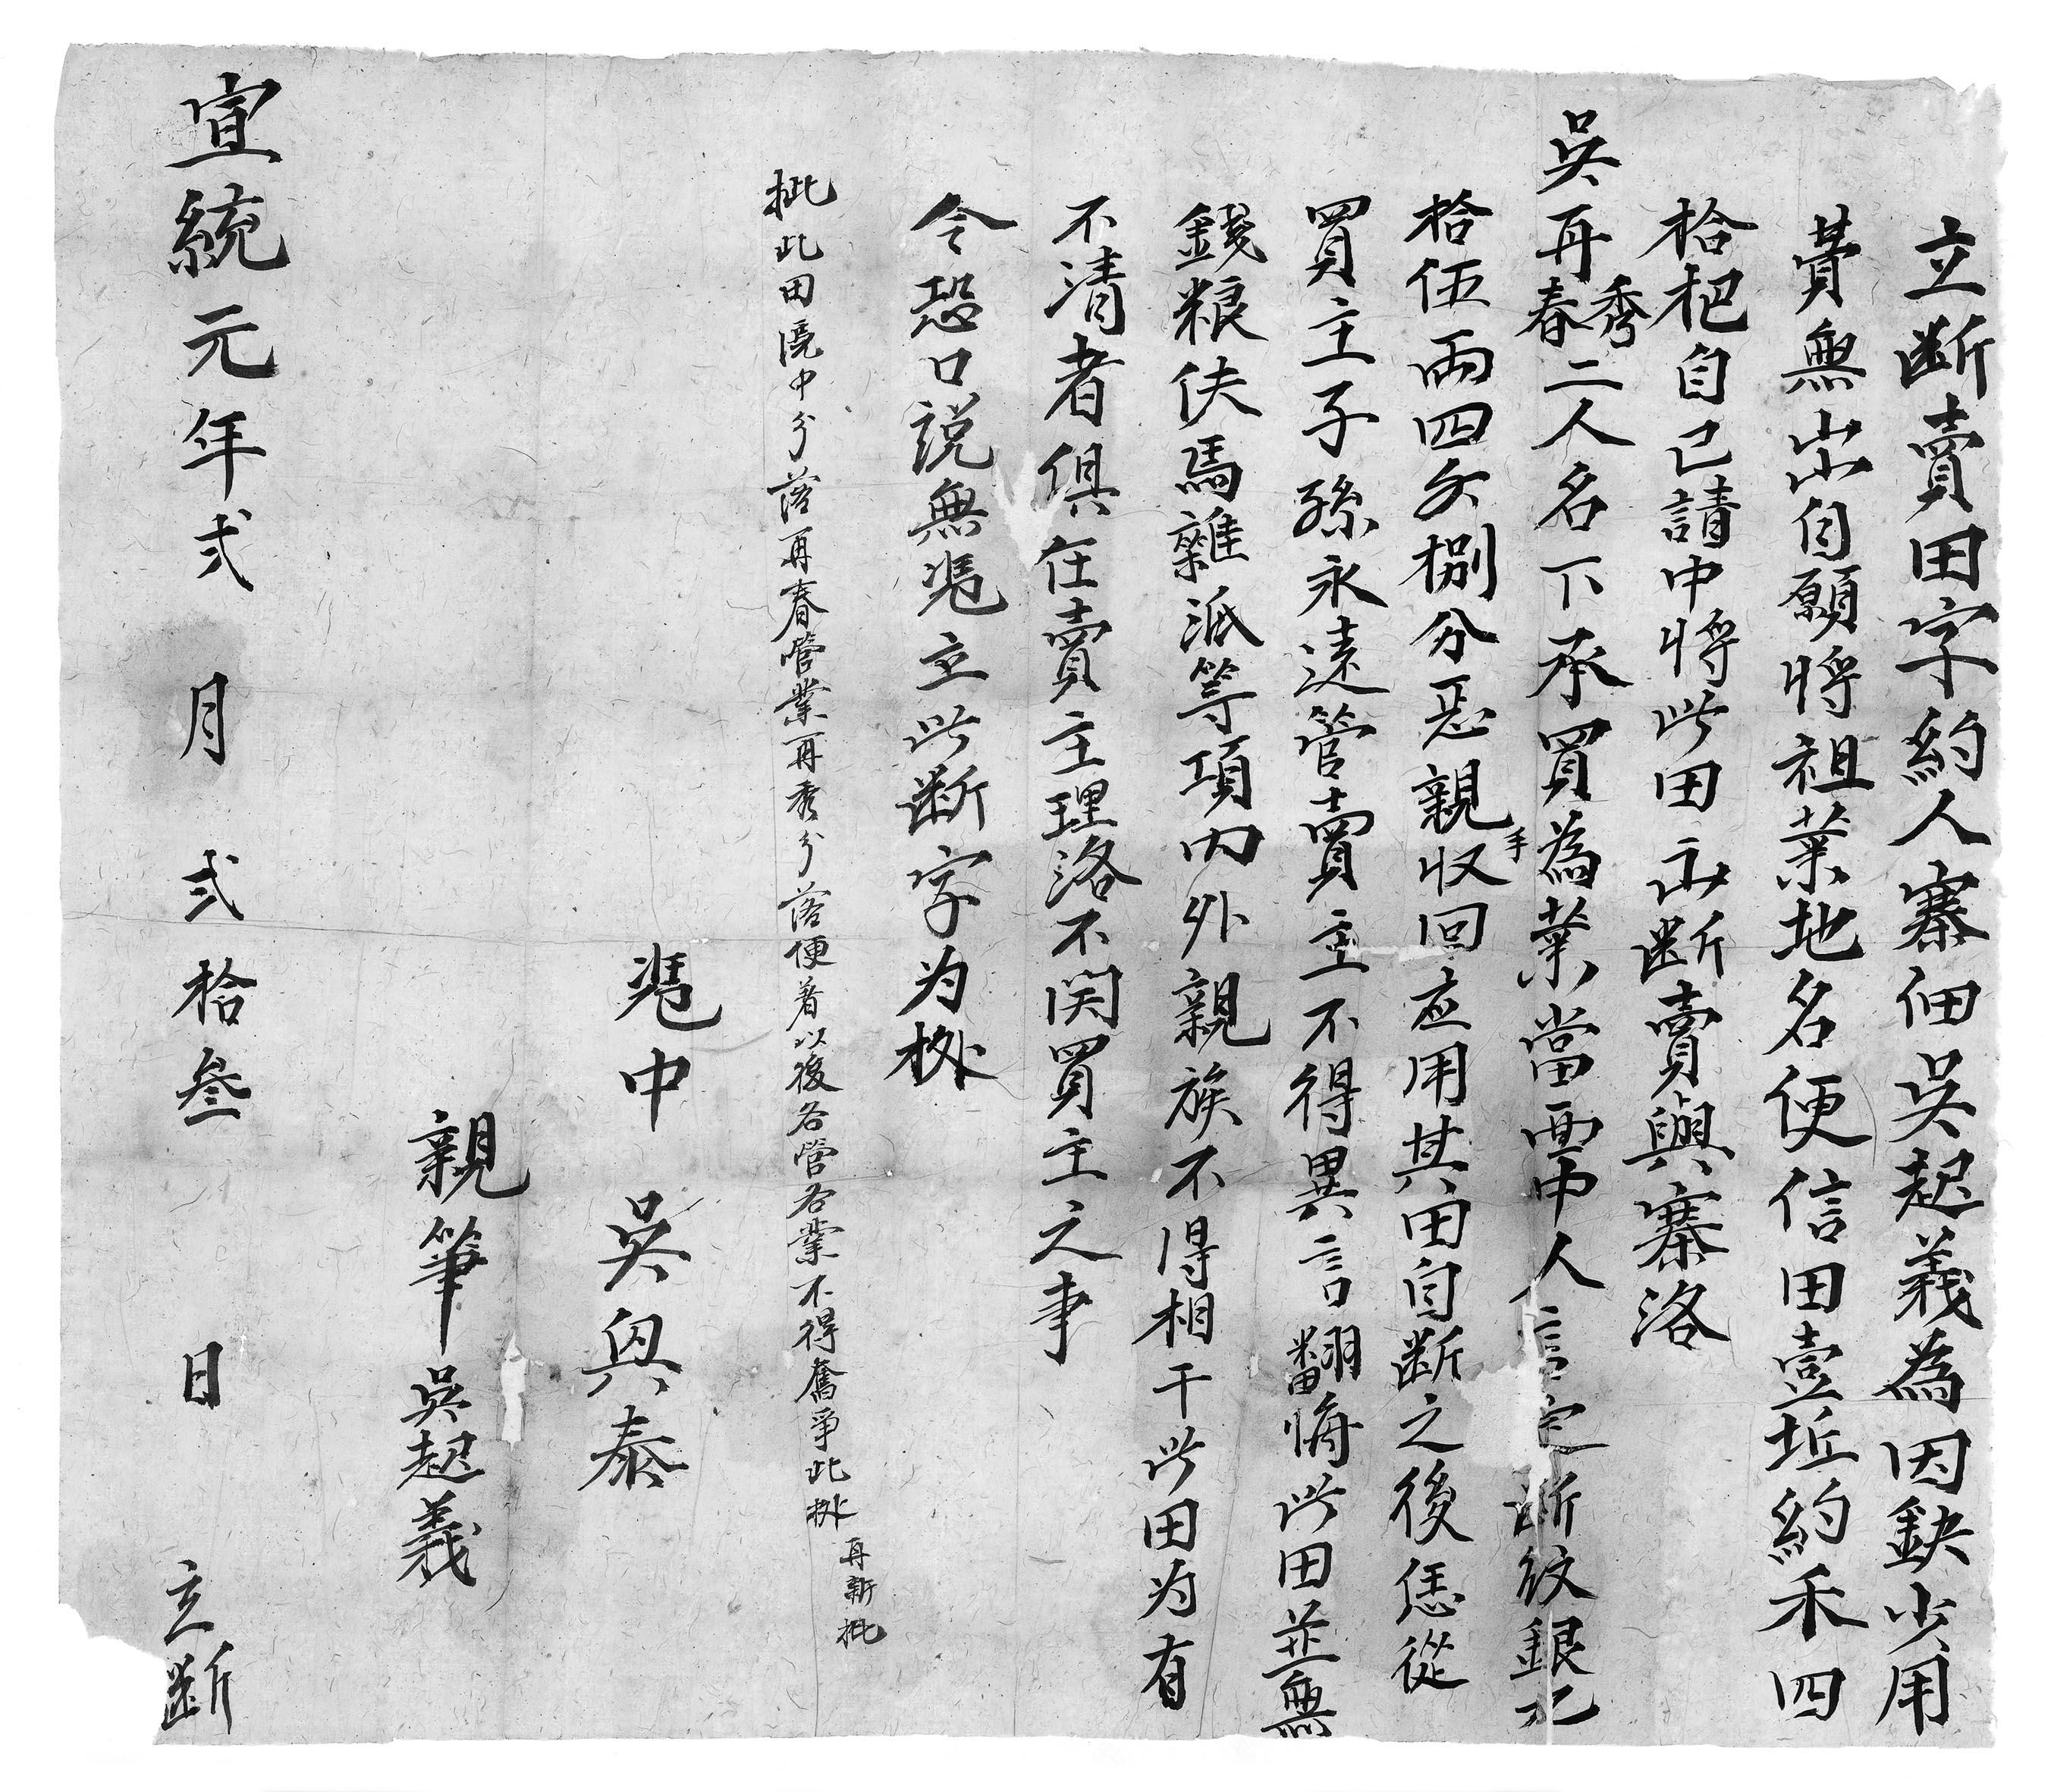 立断賣田字約人寨佃吳起義為因缺少用
費無出自願將祖業地名便信田壹坵約禾四
拾把自己請中將此田出断賣與寨洛
吳再春秀二人名下承買為業當面中人言定断紋銀
拾伍兩四欠捌分忍親手收回应用其田自断之後恁從
買主子孫永遠管賣主不得異言翻悔此田並無
錢粮伕馬雜派等項内外親族不得相干此田为有
不清者俱在賣主理洛不関買主之事
令恐口説無凴立此断字为㨿
批此田凴中分落再春管業再秀分落便着以後各管各業不得奮爭此批
再新批
凴中 吳與泰
親筆 吳起義
宣統元年弍月弍拾叁日立断